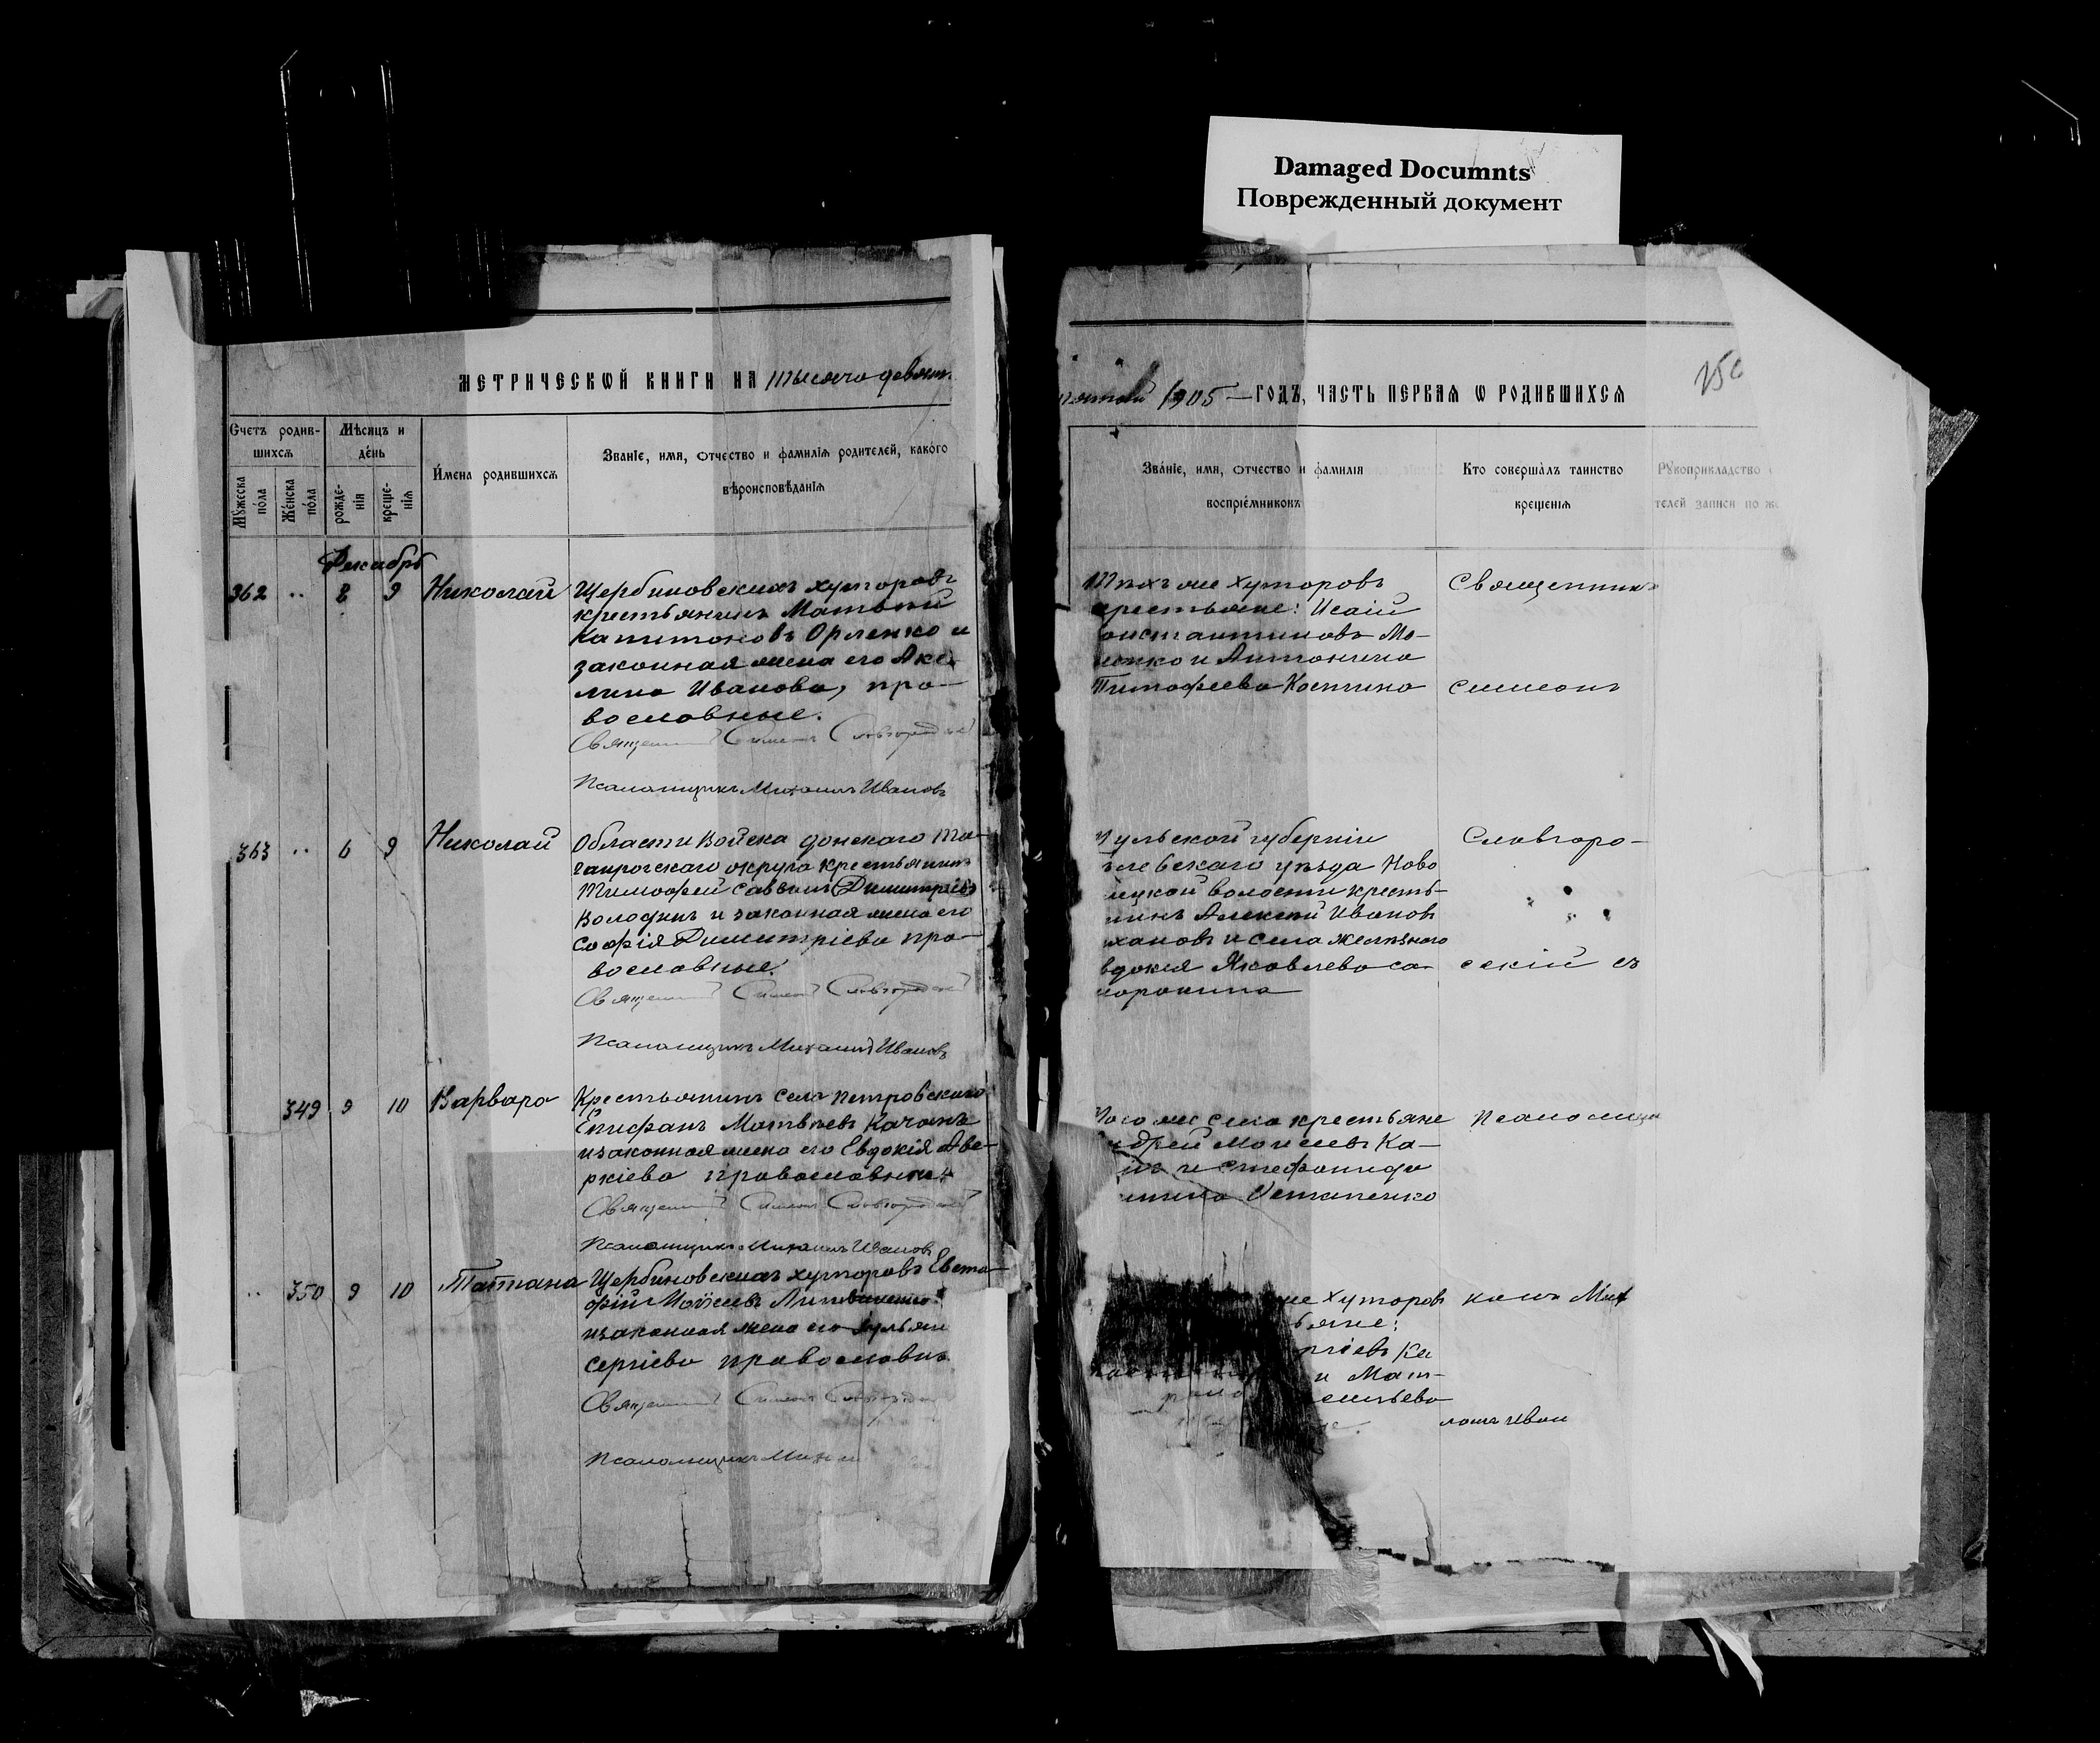 Damaged Documnts
Поврежденный документ
МЕТРИЧЕСКѠЙ КНИГИ НА тысяча девят
1905 — ГОДЪ, ЧАСТЬ ПЕРВАѦ Ѡ РОДИВШИХСѦ
Счетъ родив-
шихсѧ
Мѣсяцъ и
де́нь
И́мена родившихсѧ
Званіе, имя, ѻтчество и фамилія родителей, како́го
вѣроисповѣданіѧ
Мꙋжеска по́ла
Же́нска по́ла
рожде-нія
креще-нія
Зва́ніе, имя, ѻтчество и фамилія
воспріе́мниковъ
Кто соверша̀лъ таинство
крещенія
Рꙋкоприкладство
телей записи по же
Декабрь
362 .. 8 9 Николай Щербиновскихъ хуторовъ
крестьянинъ Матвѣй
Капитоновъ Орленко и
законная жена его Аке
лина Иванова, пра-
вославные.
Священ Симеон Словгородскій
Псаломщикъ Михаилъ Ивановъ
Тѣхъ же хуторовъ
крестьяне: Исаій
онстантиновъ Мо-
и Антонина
Тимофеева Костина
Священникъ
Симеонъ
363 .. 6 9 Николай Области Войска Донскаго Та-
ганрогскаго округа крестьянинъ
Тимофей Саввинъ Димитріевъ
Володинъ и законная жена его
Софія Димитріева пра-
вославные.
Священ Симеон Словгородскій
Псаломщикъ Михаилъ Ивановъ
ульской губерніи
уѣзда Ново
ицкой волости кресть-
нинъ Алексѣй Ивановъ
хановъ и села
вдокія Яковлева са-
Словгоро-
скій съ
349 9 10 Варвара Крестьянинъ села Петровскаго
Епифанъ Матвѣевъ Качанъ
и законная жена его Евдокія Аве-
ркіева православные
Священ Симеон Словгородскій
Псаломщикъ Михаилъ Ивановъ
Того же села крестьяне
ндрей Моисеевъ Ка-
и Стефанида
Остапенко
Псаломщи
.. 350 9 10 Татіана Щербиновскихъ хуторовъ Евста-
фій Моѵсеевъ Литвиненко
и законная жена его
Сергіева православн
Священ Симеон
Псаломщикъ Миха
же хуторовъ
ьяне:
ргіевъ Ка
и Мат-
рона
комъ Мих
ломъ Иван